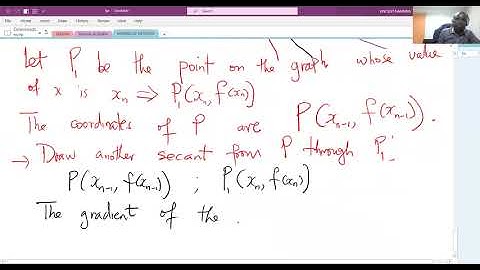 Let P₁ be the point on the graph whose value
of x is xₙ ⇒ P₁(xₙ, f(xₙ))
The coordinates of P are P(xₙ₋₁, f(xₙ₋₁)).
→ Draw another secant from P through P₁.
P(xₙ₋₁, f(xₙ₋₁)) ; P₁(xₙ, f(xₙ))
The gradient of the